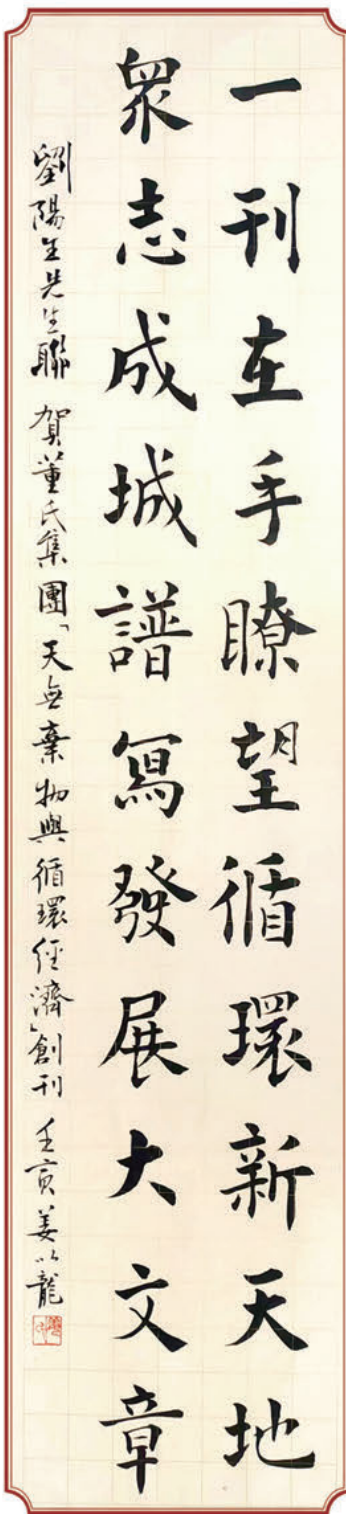 一刊在手瞭望循環新天地
眾志成城譜寫發展大文章
劉陽生先生聯 賀董氏集團「天無棄物與循環經濟」創刊 壬寅姜以龍